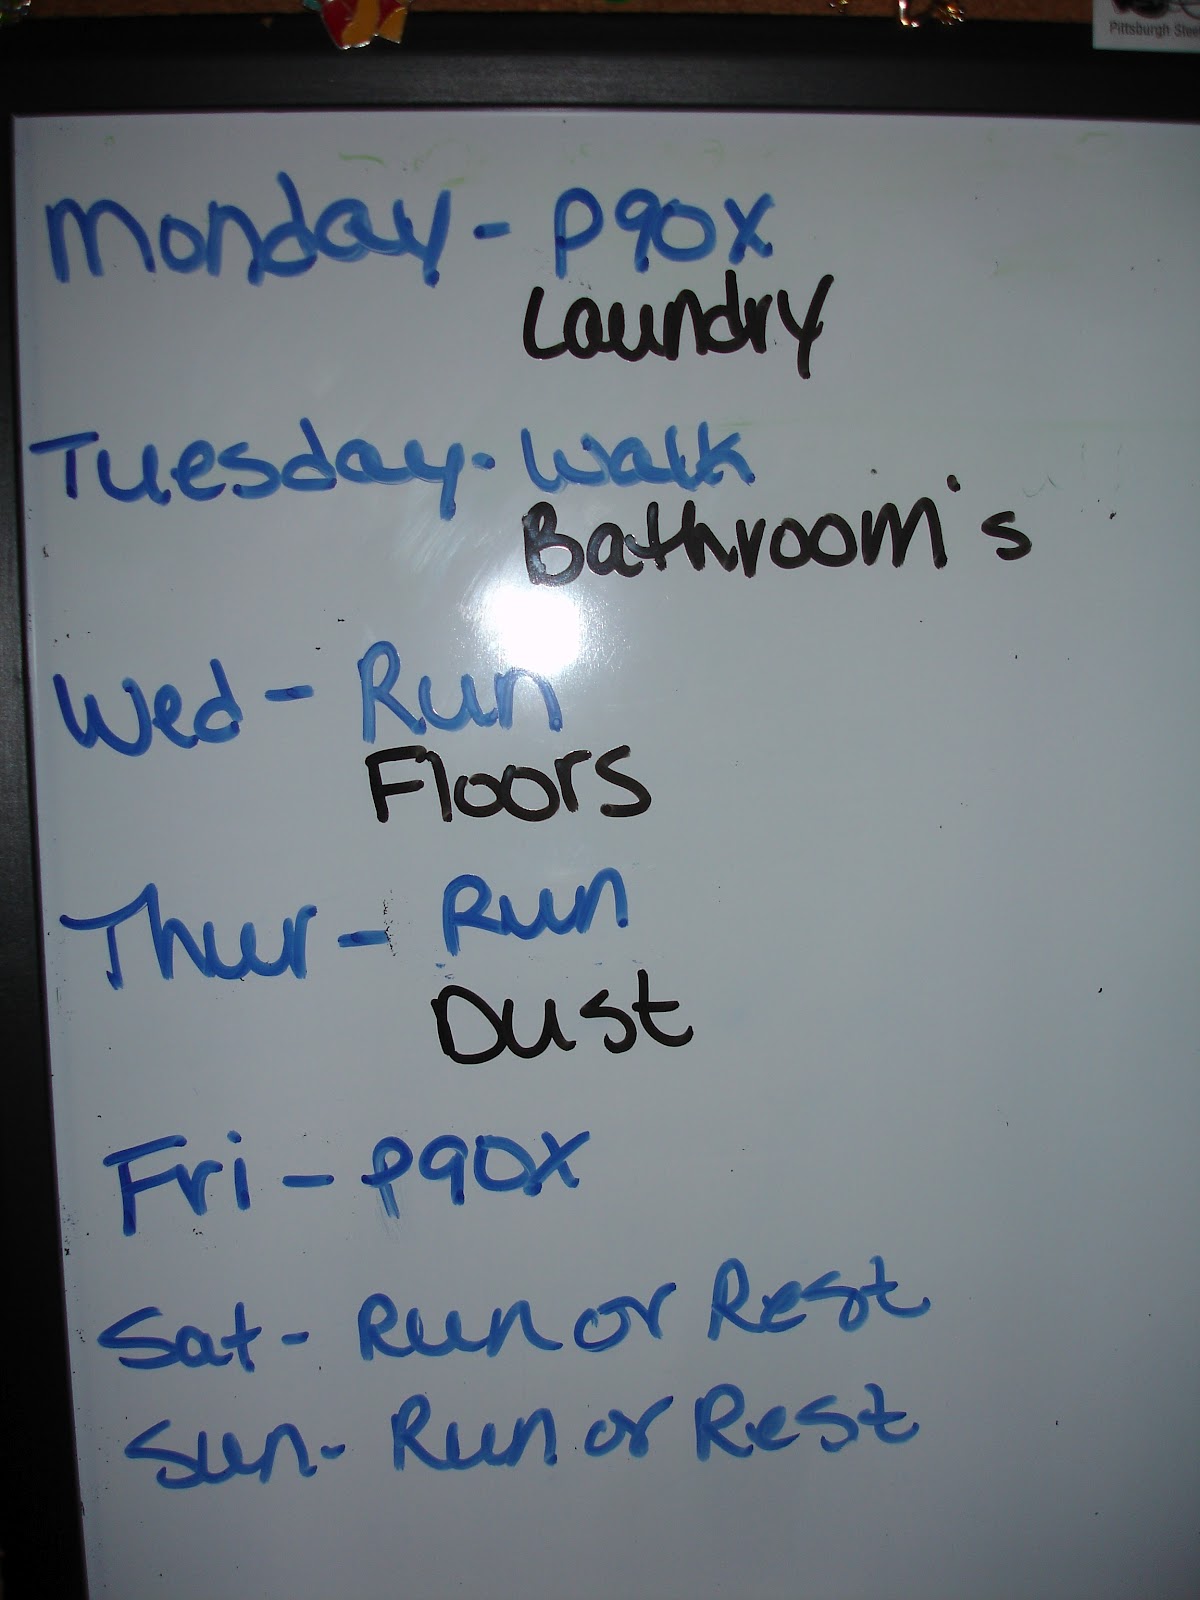 Pittsburgh Stee
Monday - P90X
Laundry
Tuesday - Walk
Bathroom's
Wed - Run
Floors
Thur - Run
Dust
Fri - P90X
Sat - Run or Rest
Sun - Run or Rest